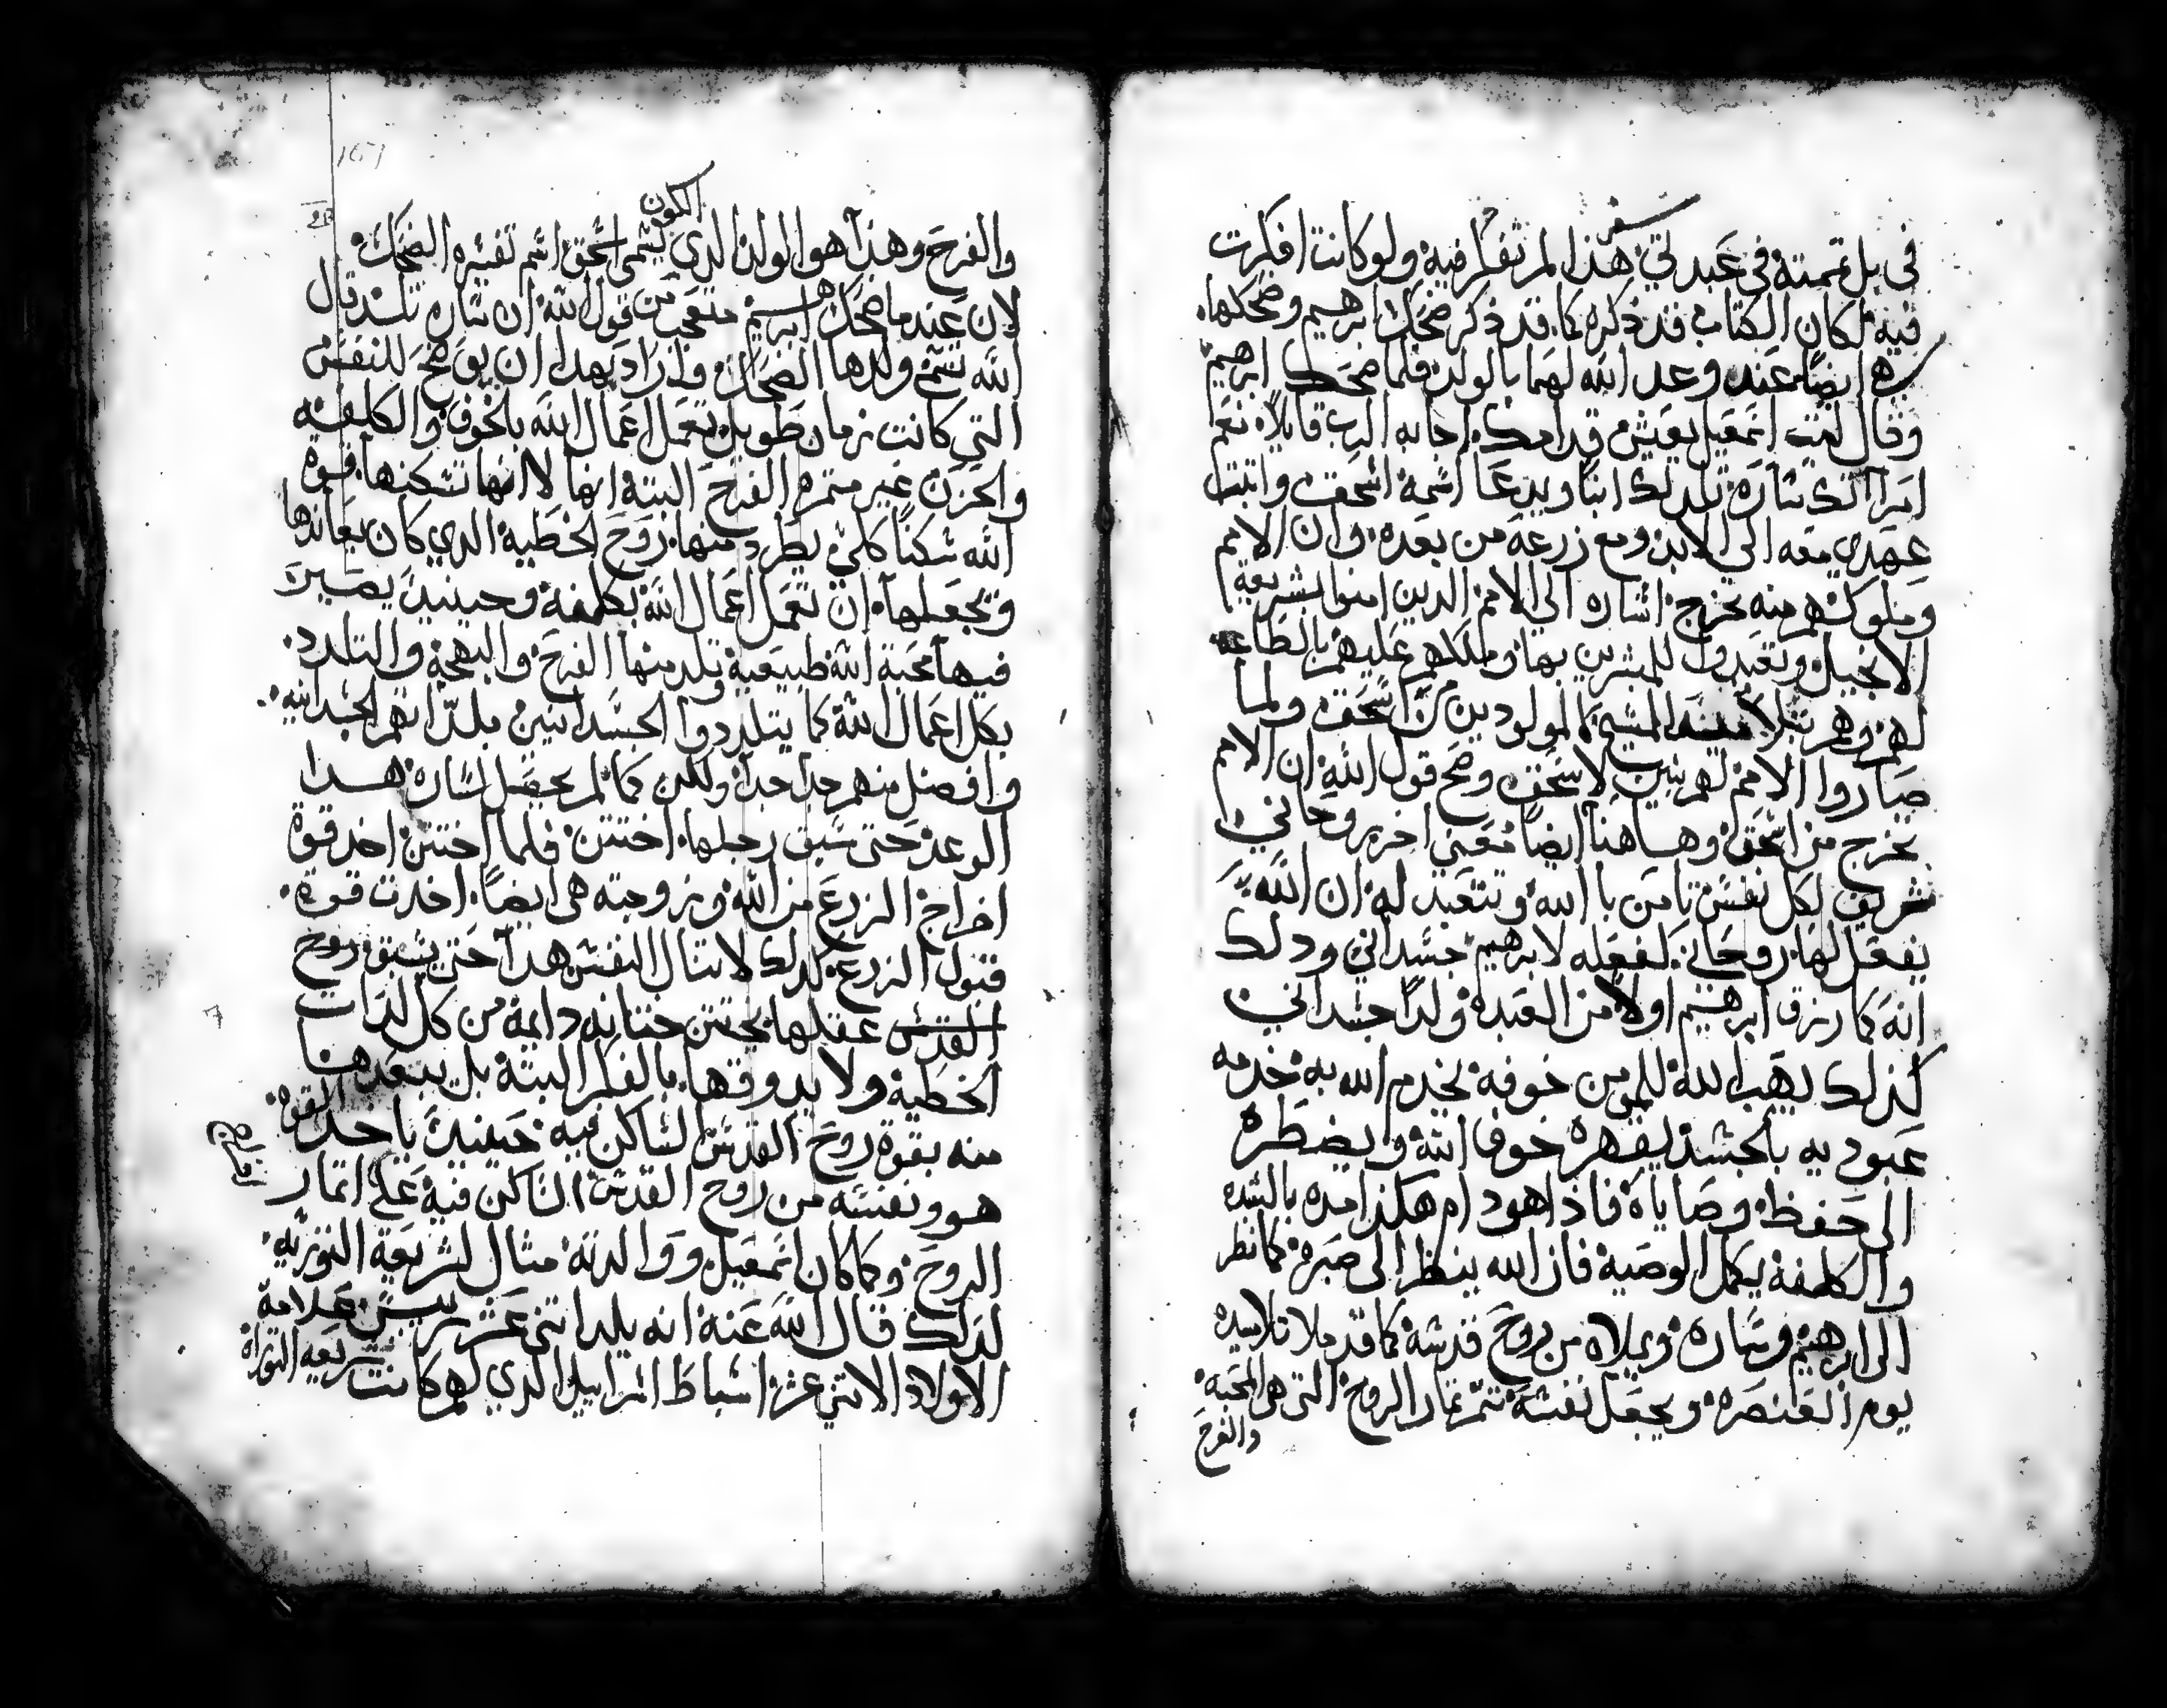 في بل تممته في عبدتي هذا لم تفكر فيه ولو كانت افكرت
فيه لكان الكتاب قد ذكره كما قد ذكر ضحك ابرهيم وضحكها
ايضا عند وعد الله لهما بالولد فلما ضحك ابرهيم
وقال ليت اسمعيل يعيش قدامك اجابه الرب قايلا نعم
امراتك ساره تلد لك ابنا ويدعا اسمه اسحق واثبت
عهدي معه الى الابد ومع زرعه من بعده وان الامم
وملوكهم منه تخرج اشاره الى الامم الدين امنوا بشريعة
الانجيل وتعبدوا للمبشرين بها وملكهم عليهم بالطاعه
لهم وهم تبلاميد المسيح المولودين من اسحق ولما
صاروا الامم لهم بنين لاسحق وضح قول الله ان الامم
تخرج من اسحق وهاهنا ايضا معنى اخر روحاني
شريف لكل نفس تامن بالله وتتعبد له ان الله
يفعل لها روحاني كفعله لابرهيم جسداني ودلك
انه كما رزق ابرهيم اولا من العبده ولدا جسداني
كذلك يهب الله للمومن خوفه يخدم الله به خدمه
عبوديه بالجسد يقهره خوف الله ويضطره
الى حفظ وصاياه فاذا هو دام هكذا مده بالشده
والكلفه يكمل الوصيه فان الله ينظر الى صبره كما نظر
الى ابرهيم وساره ويملاه من روح قدسه كما قد ملا تلاميده
يوم العنصره ويجعل نفسه تتمر تمار الروح التي هي المحبه
والفرح
والفرح وهذا هو الولد الدي يسمى اسحق اسم تفسيره الضحك
لان عند ما ضحك ابرهيم متعجب من قول الله ان ساره تلد قال
الله تسمى ولدها الضحك فاراد بهدا ان يوضح للنفس
التي كانت زمان طويل تعمل اعمال الله بالخوف والكلفه
والحزن غير متمره الفرح البته انها لا انها تسكنها قوة
الله سكنا كلي يطرد منها روح الخطيه الدي كان يعاندها
ويجعلها ان تعمل اعمال الله بكلفه وحينيد يصير
فيها محبة الله طبيعيه وتلد منها الفرح والبهجه والتلدد
بكل اعمال الله كما يتلددوا الجسدانيين بلداتهم الجسدانيه
وافضل منهم جدا جدا ولكن كما لم يحصل لساره هدا
الوعد حتى سبق رجلها اختتن فلما اختتن اخد قوة
اخراج الزرع من الله وزوجته هي ايضا اخدت قوة
قبول الزرع كدلك لا تنال النفس هدا حتى يسبق روح
القدس عقلها يختتن ختانه دايمة من كل لدات
الخطيه ولا يدوقها بالفكر البتة بل يبعدها
منه بقوة روح القدس الساكن فيه حينيد ياخد القوه
هو ونفسه من روح القدس الساكن فيه على اتمار
الروح وكما كان اسمعيل ووالدته مثال لشريعة التوريه
لدلك قال الله عنه انه يلد اتني عشر رييس علامة
الاولاد الاتني عشر اسباط اسراييل الدي لهم كانت شريعه التوراة